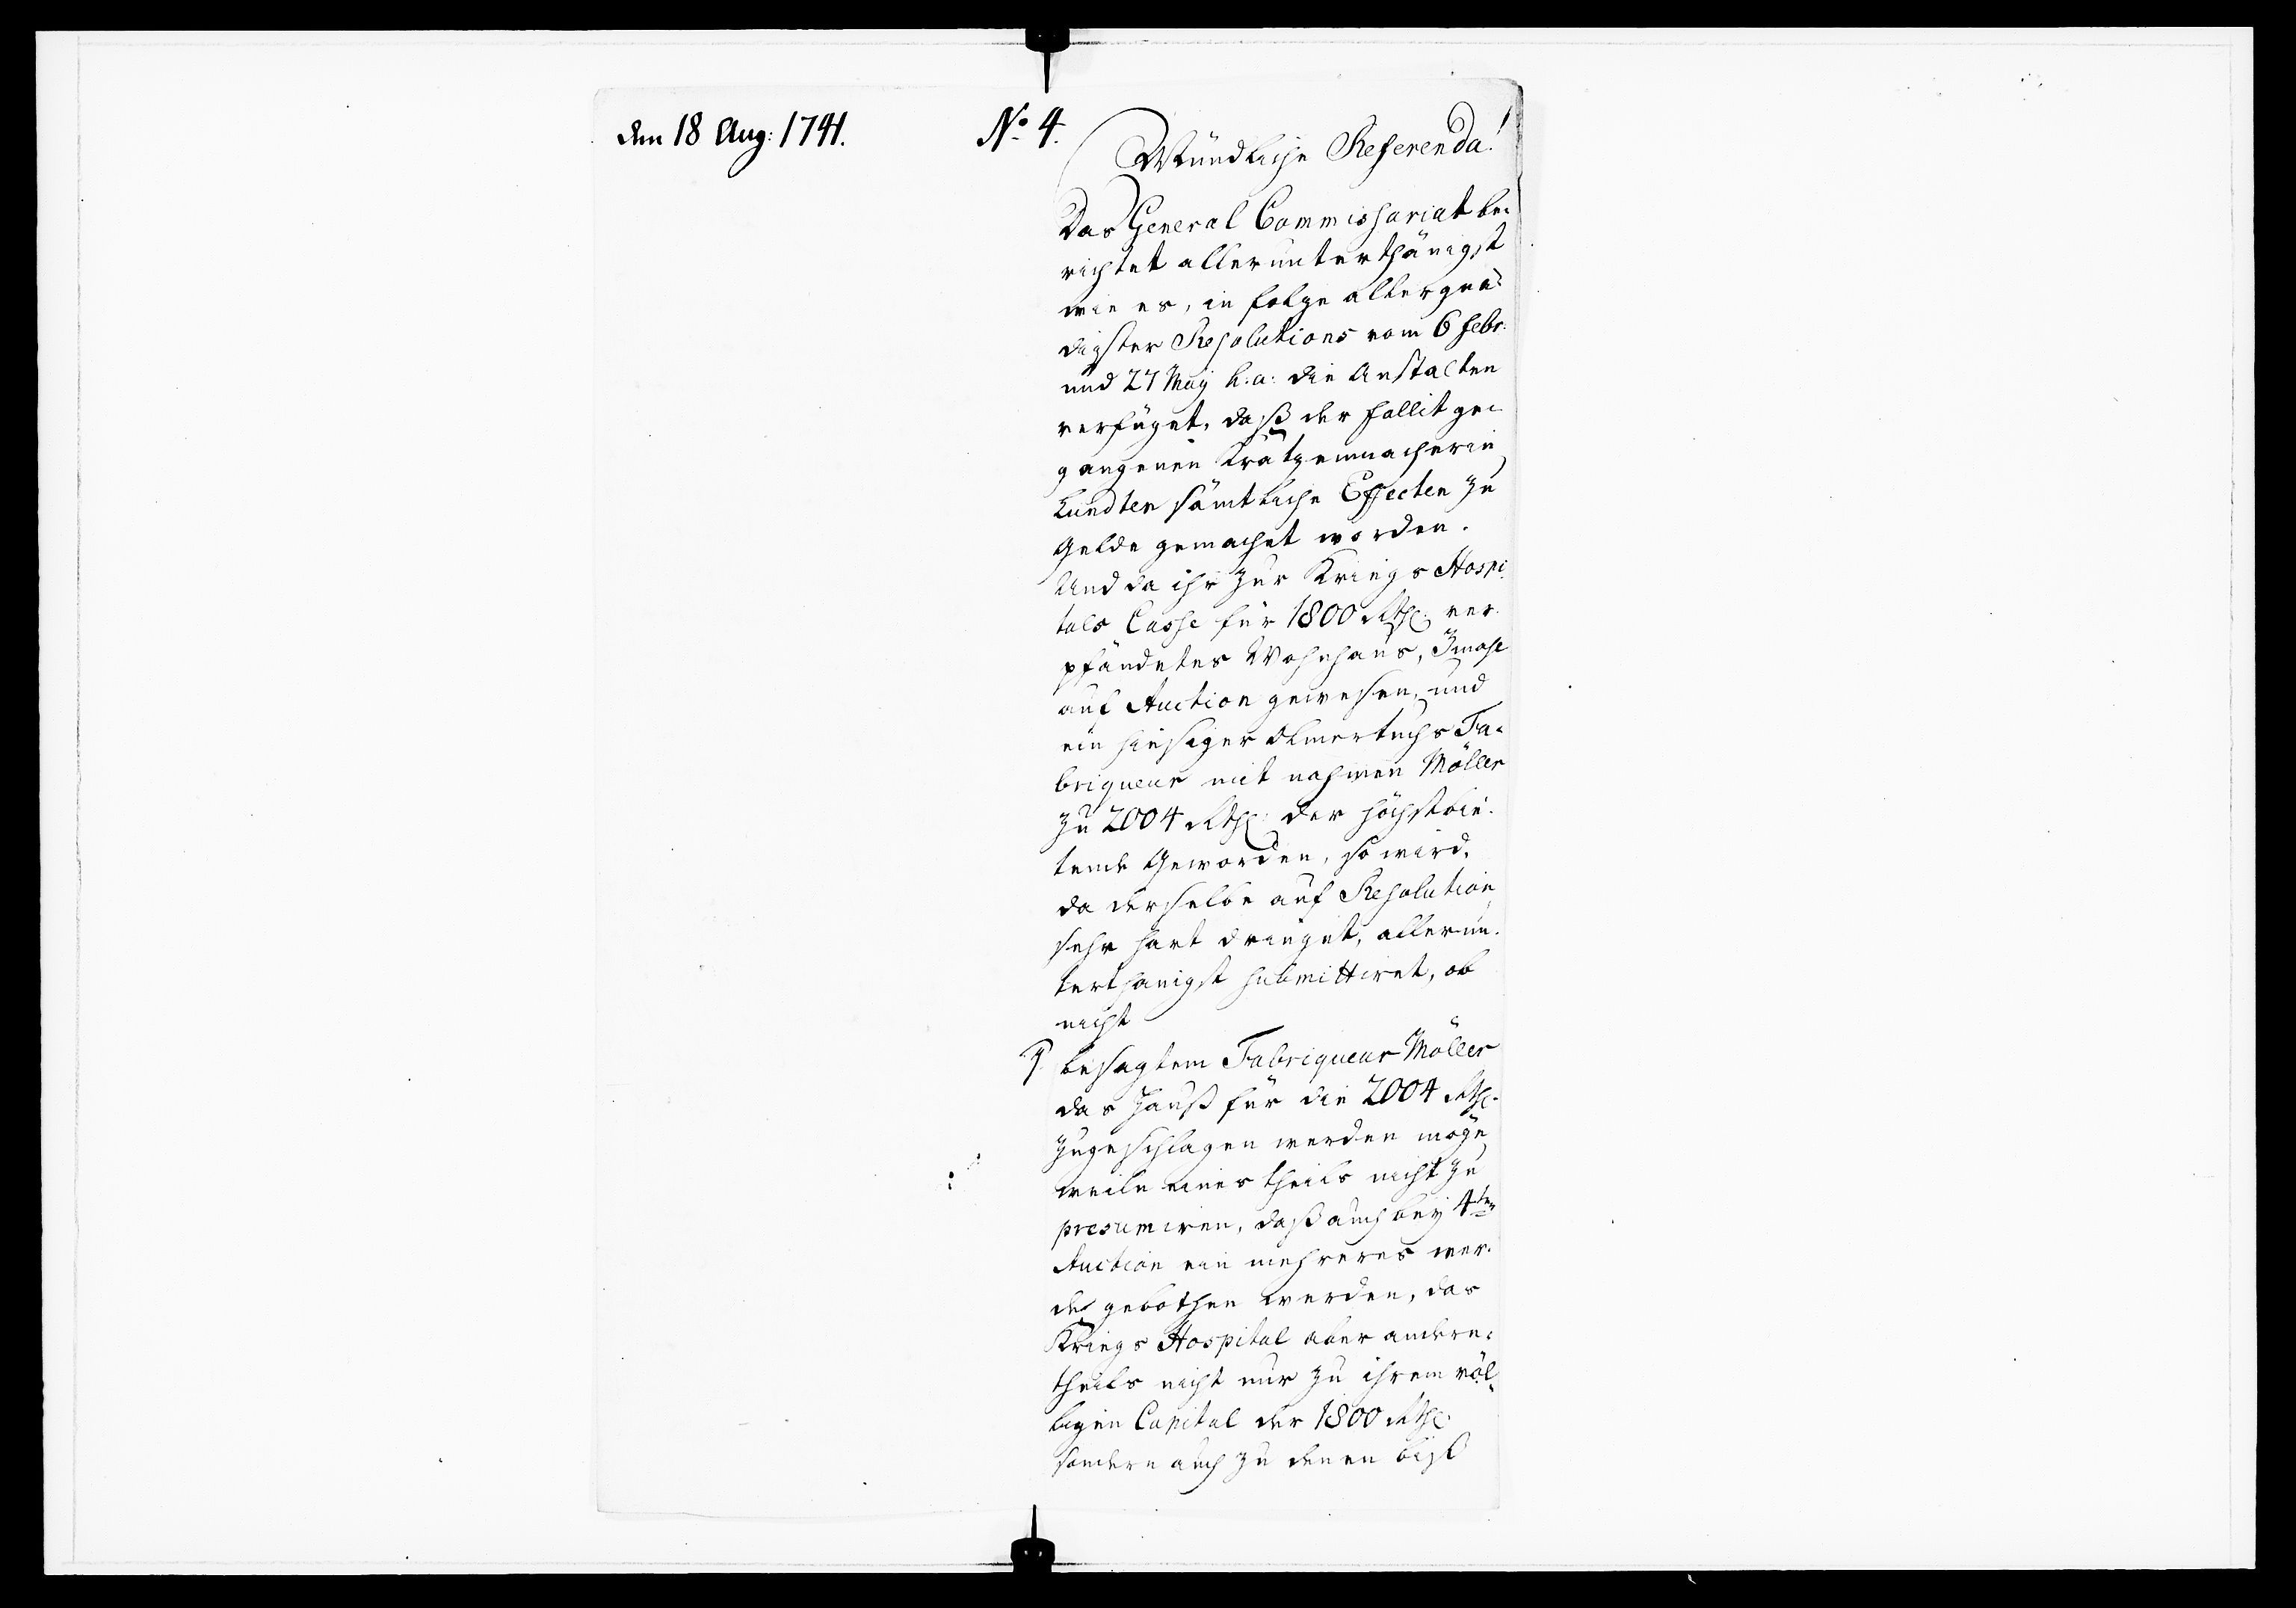 den 18 Aug: 1741.
No. 4.
Mündliche Referenda!
Das General Commissariat be-
richtet allerunterthänigst
wie es, in folge allergnä-
digster Resolutions vom 6 Febr:
und 27 May h. a: die Anstalten
verfüget, daß der fallit ge-
gangenen Krätzenmacherin
Lundten sämtliche Effecten zu
Gelde gemachet worden.
Und da ihr zur Kriegs Hospi-
tals Casse für 1800 Rthl. ver-
pfändetes Wohnhaus, 3 mahl
auf Auction gewesen, und
ein hiesiger Olmertuchs Fa-
briqueur mit nahmen Möller
zu 2004 Rthl: der höchstbie-
tende Geworden, so wird,
da derselbe auf Resolution
sehr hart dringet, allerun-
terthänigst submittiret, ob
nicht
besagtem Fabriqueur Möller
das Hauß für die 2004 Rthl.
zugeschlagen werden möge
weiln eines theils nicht zu
presumiren, daß auch bey 4ter
Auction ein mehreres wer-
de gebothen werden, das
Kriegs Hospital aber andern-
theils nicht nur zu ihrem völ-
ligen Capital der 1800 Rthl.
sondern auch zu denen biß